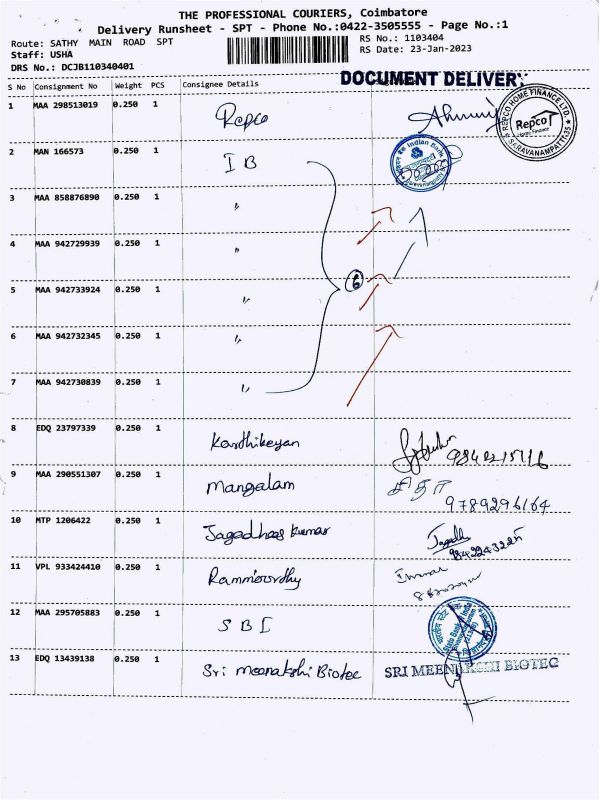 THE PROFESSIONAL COURIERS, Coimbatore
Delivery Runsheet - SPT - Phone No.:0422-3505555 - Page No.:1
Route: SATHY MAIN ROAD SPT
RS No.: 1103404
Staff: USHA
RS Date: 23-Jan-2023
DRS No.: DCJB110340401
DOCUMENT DELIVERY
S No Consignment No Weight PCS Consignee Details
1 MAA 298513019 0.250 1 Repco
REPCO HOME FINANCE LTD.
Repco
Home Finance
SARAVANAMPATTI-35
2 MAN 166573 0.250 1 I B
Indian Bank
3 MAA 858876890 0.250 1 "
4 MAA 942729939 0.250 1 "
5 MAA 942733924 0.250 1 " 6
6 MAA 942732345 0.250 1 "
7 MAA 942730839 0.250 1 "
8 EDQ 23797339 0.250 1 Karthikeyan
9 MAA 290551307 0.250 1 Mangalam
9789296164
10 MTP 1206422 0.250 1 Jagadhees kumar
11 VPL 933424410 0.250 1 Rammoorthy
12 MAA 295705883 0.250 1 S B I
State Bank of India
13 EDQ 13439138 0.250 1 Sri meenakshi Biotec
SRI MEENAKSHI BIOTEC